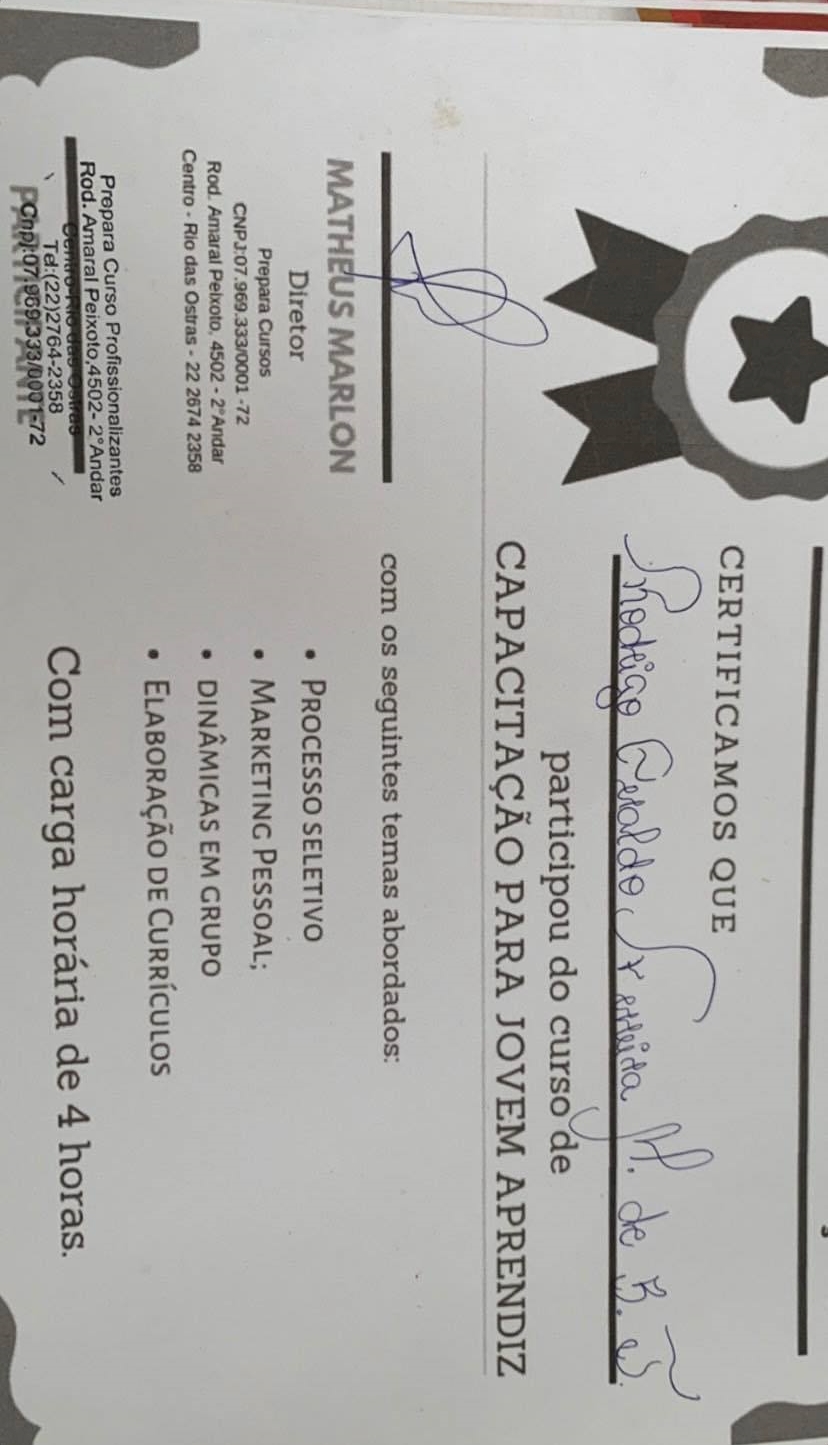 CERTIFICAMOS QUE
Rodrigo Geraldo Ferreira M. de B. J.
participou do curso de
CAPACITAÇÃO PARA JOVEM APRENDIZ
com os seguintes temas abordados:
• PROCESSO SELETIVO
• MARKETING PESSOAL;
• DINÂMICAS EM GRUPO
• ELABORAÇÃO DE CURRÍCULOS
Com carga horária de 4 horas.
MATHEUS MARLON
Diretor
Prepara Cursos
CNPJ:07.969.333/0001 -72
Rod. Amaral Peixoto, 4502 - 2°Andar
Centro - Rio das Ostras - 22 2674 2358
Prepara Curso Profissionalizantes
Rod. Amaral Peixoto,4502- 2°Andar
Centro-Rio das Ostras
Tel:(22)2764-2358
Cnpj:07.969.333/0001-72
PARTICIPANTE